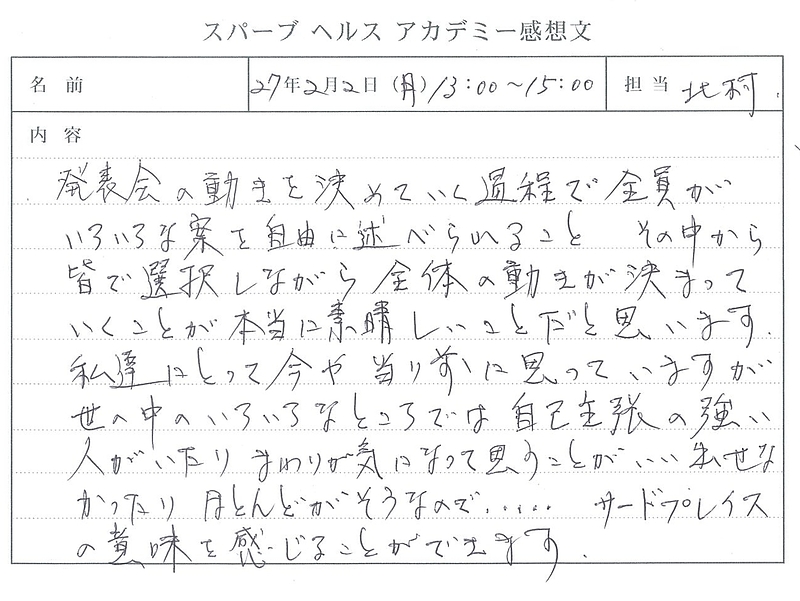 スパーブ ヘルス アカデミー感想文
名 前 27年2月2日 (月) 13:00~15:00 担当 北村
内 容
発表会の動きを決めていく過程で全員が
いろいろな案を自由に述べられること その中から
皆で選択しながら全体の動きが決まって
いくことが本当に素晴しいことだと思います.
私達にとって今や当り前に思っていますが
世の中のいろいろなところでは自己主張の強い
人がいたり まわりが気になって思うことがいい出せな
かったり ほとんどがそうなので...... サードプレイス
の意味を感じることができます.